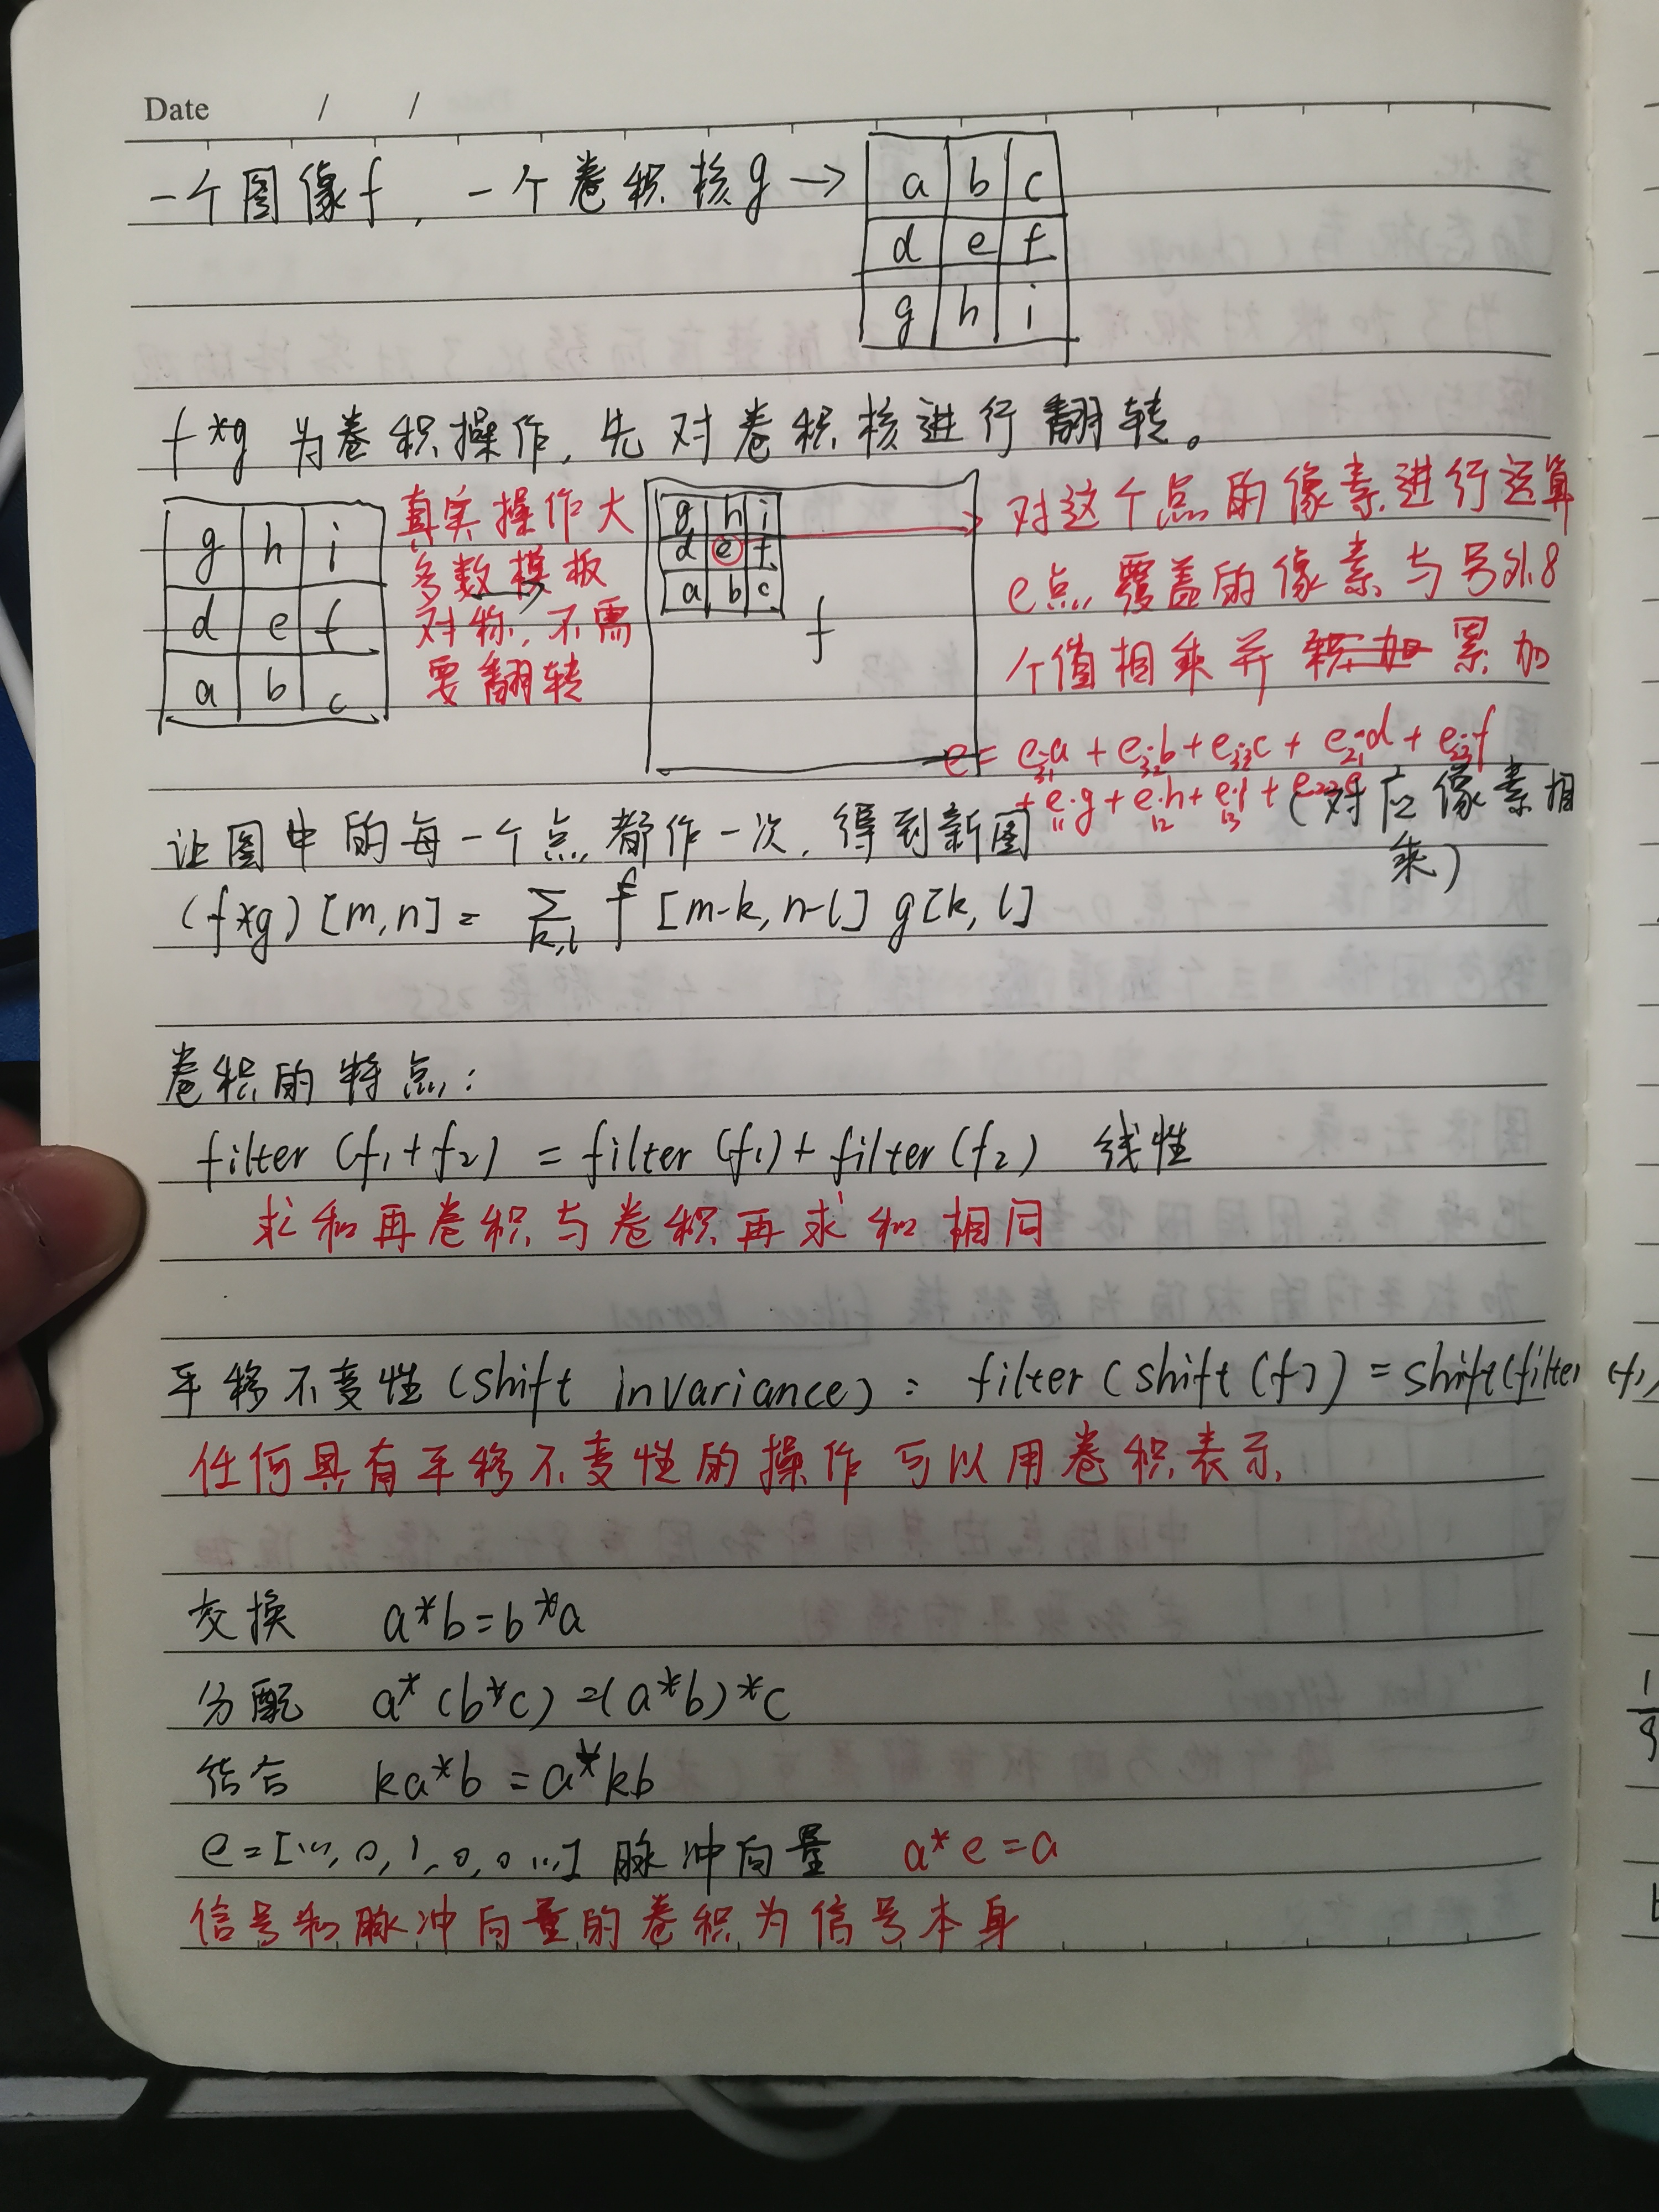 Date / /
一个图像f，一个卷积核g →
a b c
d e f
g h i
f*g 为卷积操作，先对卷积核进行翻转。
g h i
d e f
a b c
真实操作大
多数模板
对称，不需
要翻转
g h i
d e f
a b c
f
对这个点的像素进行运算
e点覆盖的像素与另外8
个值相乘并 累加
e = e31·a + e32·b + e33·c + e21·d + e23·f
+ e11·g + e12·h + e13·i + e22·e
(对应像素相
乘)
让图中的每一个点都作一次，得到新图
(f*g)[m,n] = Σk,l f[m-k, n-l] g[k, l]
卷积的特点：
filter (f1+f2) = filter (f1) + filter (f2) 线性
求和再卷积与卷积再求和相同
平移不变性 (shift invariance)： filter (shift (f)) = shift(filter (f)
任何具有平移不变性的操作可以用卷积表示
交换 a*b=b*a
分配 a*(b*c)=(a*b)*c
结合 ka*b=a*kb
e=[…,0,1,0,0…] 脉冲向量 a*e=a
信号和脉冲向量的卷积为信号本身